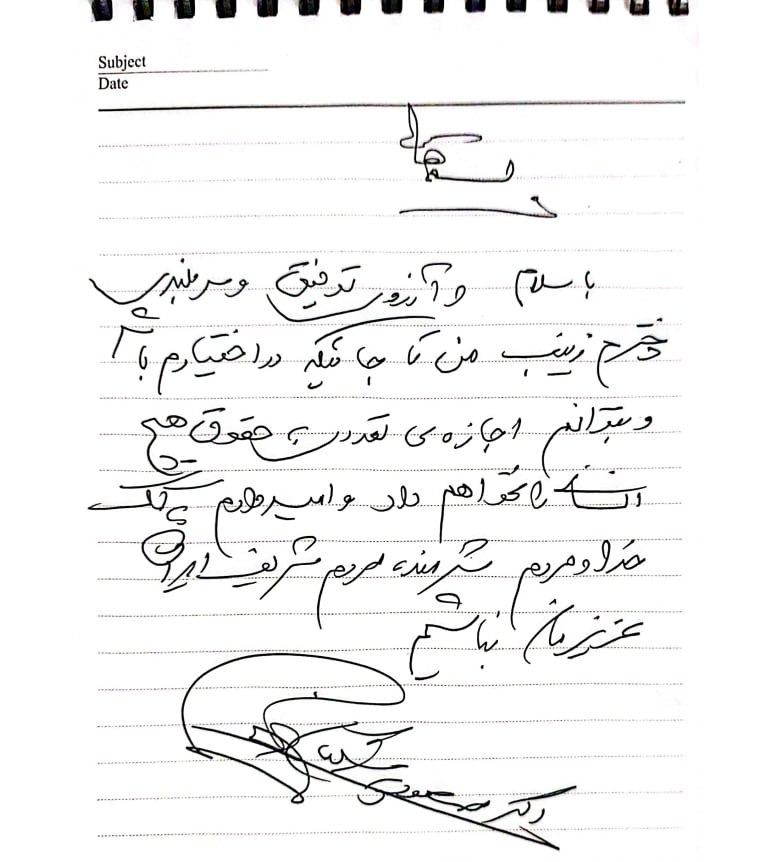 Subject
Date
با سلام و آرزوی توفیق و سربلندی
دخترم زینب من تا جائیکه در اختیارم باشد
و بتوانم اجازه‌ی تعدی به حقوق هیچ
انسانی را نخواهم داد و امیدوارم به کمک
خدا و مردم شرمنده مردم شریف ایران
عزیزمان نباشم
دکتر